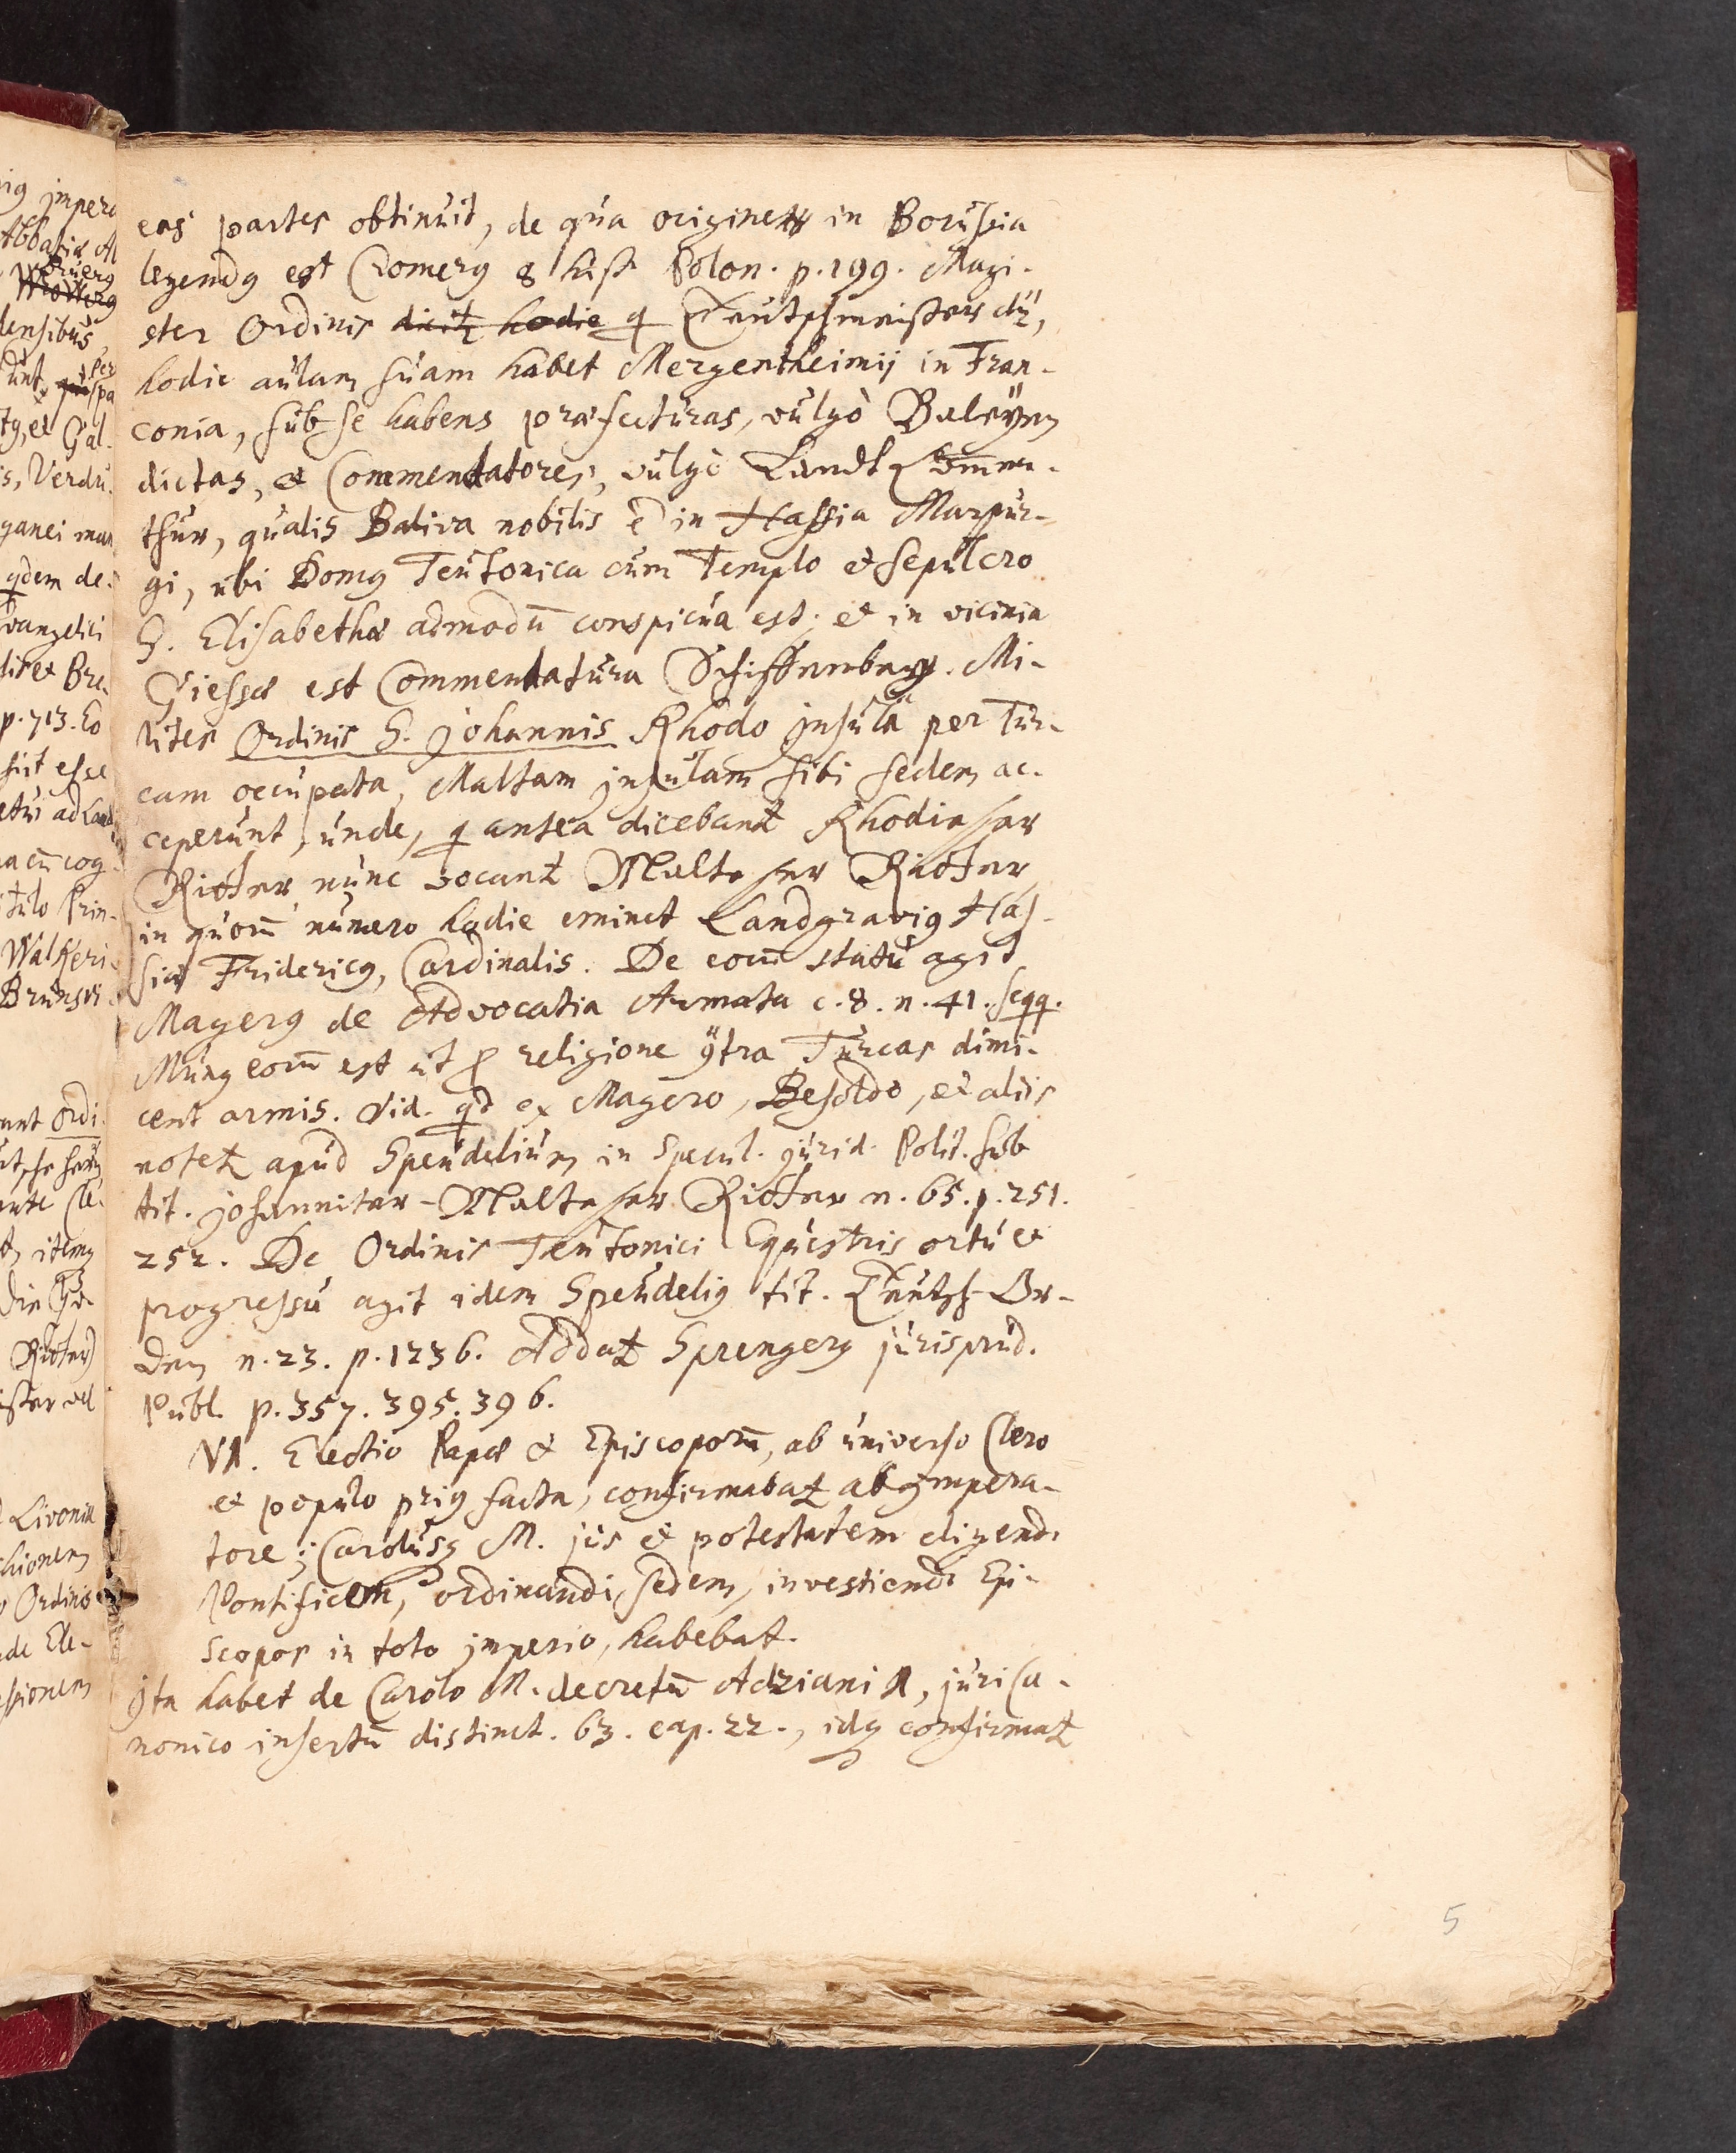 eas partes obtinuit, de qua origine in Borussia
legendꝰ est Cromerꝰ 8 hist. Polon. p. 199. Magi-
ster Ordinis dicitr hodie q Teutschmeister dr,
hodie aulam suam habet Mergentheimij in Fran-
conia, sub se habens præfecturas, vulgò Baleyen
dictas, et Commendatores, vulgò Landt Comme-
thur, qualis Baliva nobilis ē in Hassia Marpur-
gi, ubi Domꝰ Teutonica cum Templo et Sepulcro
S. Elisabethæ admodū conspicua est; et in vicinia
Giessæ est Commendatura Schiffenberg. Mi-
lites Ordinis S. Johannis Rhodo jnsulâ per Tur-
cam occupata, Maltam jnsulam sibi sedem ac-
ceperunt, unde, q antea dicebantr Rhodiser
Ritter, nunc vocantr Malteser Ritter,
in quorū numero hodie eminet Landgraviꝰ Has-
siæ Fridericꝰ, Cardinalis. De eorū statu agit
Magerꝰ de Advocatia Armata c. 8. n. 41. seqq.
Munꝰ eorū est ut ꝓ religione ꝯtra Turcas dimi-
cent armis. Vid. qd ex Magero, Besoldo, et aliis
notetr apud Speidelium in Specul. jurid. Polit. sub
tit. Johanniter-Malteser Ritter n. 65. p. 251.
252. De Ordinis Teutonici Equestris ortu et
progressu agit idem Speideliꝰ tit. Teutsch-Or-
den n. 23. p. 1236. Addatr Sprengerꝰ jurisprud.
Publ. p. 357. 395. 396.
VI. Electio Papæ et Episcoporū, ab universo Clero
et populo priꝰ facta, confirmabatr ab jmpera-
tore; Carolusq M. jus et potestatem eligendi
Pontificem, ordinandi sedem, investiendi Epi-
scopos in toto jmperio, habebat.
jta habet de Carolo M. decretū Adriani I, juri Ca-
nonico insertū distinct. 63. cap. 22., idq confirmatr
5